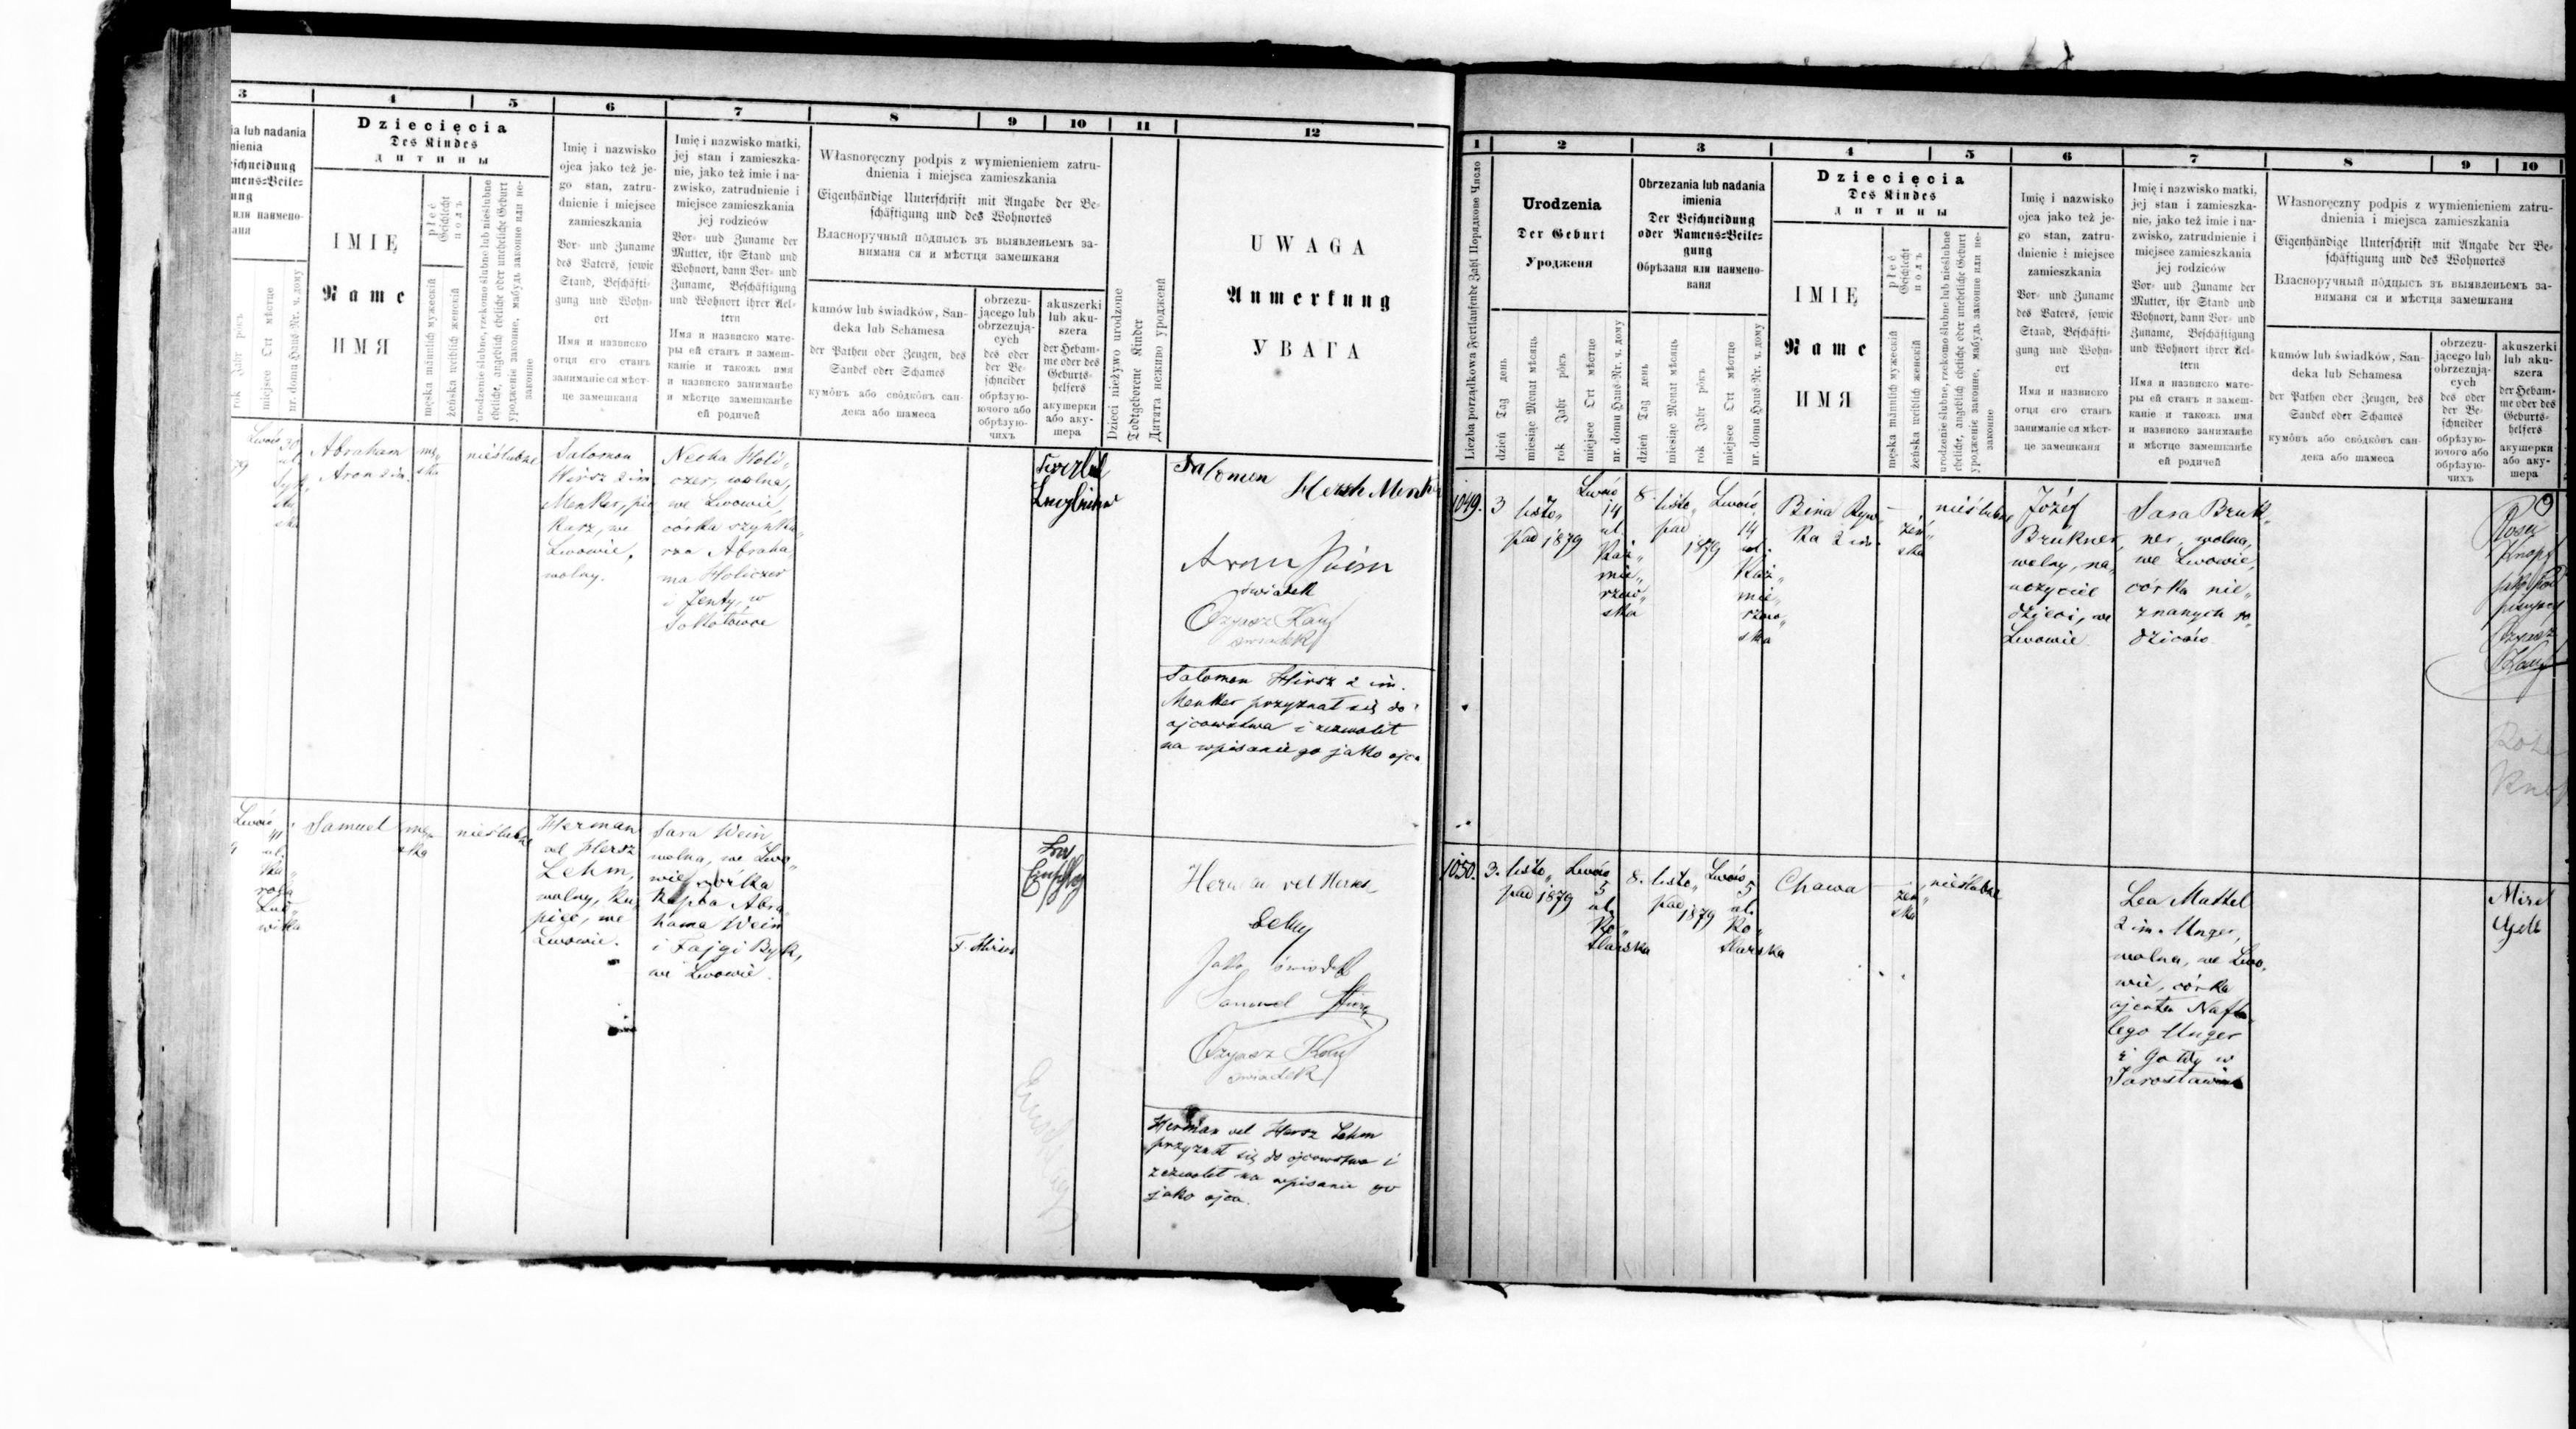 3
4
5
6
7
8
9
10
11
12
ia lub nadania
mienia
mens=Beile=
ung
или наимено-
вания
rok Jahr рôкъ
miejsce Ort мѣстце
nr. domu Haus=Nr. ч. дому
Dziecięcia
Des Kindes
дитины
IMIĘ
Name
ИМЯ
płeć
Geschlecht
полъ
męska männlich мужескiй
żeńska weiblich женскiй
urodzenie ślubne, rzekomo ślubne lub nieślubne
eheliche, angeblich eheliche oder uneheliche Geburt
уродженіе законне, мабудь законне или не-
законне
Imię i nazwisko
ojca jako też je-
go stan, zatru-
dnienie i miejsce
zamieszkania
Vor= und Zuname
des Vaters, sowie
Stand, Beschäfti=
gung und Wohn=
ort
Имя и назвиско
отця его станъ
заниманіе ся мѣст-
це замешканя
Imię i nazwisko matki,
jej stan i zamieszka-
nie, jako też imie i na-
zwisko, zatrudnienie i
miejsce zamieszkania
jej rodziców
Vor= und Zuname der
Mutter, ihr Stand und
Wohnort, dann Vor= und
Zuname, Beschäftigung
und Wohnort ihrer Ael=
tern
Имя и назвиско мате-
ры ей станъ и замеш-
каніе и такожъ имя
и назвиско заниманѣе
и мѣстце замешканѣе
ей родичей
Własnoręczny podpis z wymienieniem zatru-
dnienia i miejsca zamieszkania
Eigenhändige Unterschrift mit Angabe der Be=
schäftigung und des Wohnortes
Власноручный пôдпысъ зъ выявленьемъ за-
ниманя ся и мѣстця замешканя
kumów lub świadków, San-
deka lub Schamesa
der Pathen oder Zeugen, des
Sandek oder Schames
кумôвъ або свôдкôвъ сан-
дека або шамеса
obrzezu-
jącego lub
obrzezują-
cych
des oder
der Be=
schneider
обрѣзую-
ючого або
обрѣзую-
чихъ
akuszerki
lub aku-
szera
der Hebam=
me oder des
Geburts=
helfers
акушерки
або аку-
шера
Dzieci nieżywo urodzone
Todtgeborene Kinder
Дитята неживо уроджени
UWAGA
Anmerkung
УВАГА
Lwów
Abraham
Aron 2 im.
mę„
ska
nieślubne
Salomon
Hirsz 2 im
Menker, pie
karz, we
Lwowie,
wolny.
Necha Holi„
czer, wolna,
we Lwowie,
córka szynka„
rza Abraha
ma Holiczer
i Jenty, w
Sokołowce
Salomon Hersh Menk
Aron
świadek
Ozyasz Kauf
świadek
Salomon Hirsz 2 im.
Menker przyznał się do
ojcowstwa i zezwolił
na wpisanie go jako ojca
Lwów
41
ul.
Samuel
mę„
ska
nieślubne
Herman
vel Hersz
Lehm,
wolny, ku„
piec, we
Lwowie.
Sara Wein
wolna, we Lwo„
wie, córka
kupca Abra
hama Wein
i Fajgi Byk,
we Lwowie.
Herman vel Hersz
Lehm
Jako świadek
Samuel
Ozyasz Kauf
świadek
Herman vel Hersz Lehm
przyznał się do ojcowstwa i
zezwolił na wpisanie go
jako ojca.
1
2
3
4
5
6
7
8
9
10
Liczba porządkowa Fortlaufende Zahl Порядкове Число
Urodzenia
Der Geburt
Уродженя
dzień Tag день
miesiąc Monat мѣсяць
rok Jahr рôкъ
miejsce Ort мѣстце
nr. domu Haus=Nr. ч. дому
Obrzezania lub nadania
imienia
Der Beschneidung
oder Namens=Beile=
gung
Обрѣзаня или наимено-
ваня
dzień Tag день
miesiąc Monat мѣсяць
rok Jahr рôкъ
miejsce Ort мѣстце
nr. domu Haus=Nr. ч. дому
Dziecięcia
Des Kindes
дитины
IMIĘ
Name
ИМЯ
płeć
Geschlecht
полъ
męska männlich мужескiй
żeńska weiblich женскiй
urodzenie ślubne, rzekomo ślubne lub nieślubne
eheliche, angeblich eheliche oder uneheliche Geburt
уродженіе законне, мабудь законне или не-
законне
Imię i nazwisko
ojca jako też je-
go stan, zatru-
dnienie i miejsce
zamieszkania
Vor= und Zuname
des Vaters, sowie
Stand, Beschäfti=
gung und Wohn=
ort
Имя и назвиско
отця его станъ
заниманіе ся мѣст-
це замешканя
Imię i nazwisko matki,
jej stan i zamieszka-
nie, jako też imie i na-
zwisko, zatrudnienie i
miejsce zamieszkania
jej rodziców
Vor= und Zuname der
Mutter, ihr Stand und
Wohnort, dann Vor= und
Zuname, Beschäftigung
und Wohnort ihrer Ael=
tern
Имя и назвиско мате-
ры ей станъ и замеш-
каніе и такожъ имя
и назвиско заниманѣе
и мѣстце замешканѣе
ей родичей
Własnoręczny podpis z wymienieniem zatru-
dnienia i miejsca zamieszkania
Eigenhändige Unterschrift mit Angabe der Be=
schäftigung und des Wohnortes
Власноручный пôдпысъ зъ выявленьемъ за-
ниманя ся и мѣстця замешканя
kumów lub świadków, San-
deka lub Schamesa
der Pathen oder Zeugen, des
Sandek oder Schames
кумôвъ або свôдкôвъ сан-
дека або шамеса
obrzezu-
jącego lub
obrzezują-
cych
des oder
der Be=
schneider
обрѣзую-
ючого або
обрѣзую-
чихъ
akuszerki
lub aku-
szera
der Hebam=
me oder des
Geburts=
helfers
акушерки
або аку-
шера
1049.
3 listo„
pad 1879
Lwów
14
ul.
Kaź„
mie„
rzow„
ska
8. listo„
pad
1879
Lwów
14
ul.
Kaź„
mie„
rzow„
ska
Bina Ryw„
ka 2 im.
żeń„
ska
nieślubne
Józef
Brukner,
wolny, na„
uczyciel
dzieci, we
Lwowie.
Sara Bruk„
ner, wolna,
we Lwowie,
córka nie„
znanych ro„
dziców.
Knopf
Ozyasz
Kauf
1050.
3. listo„
pad 1879
Lwów
5
ul.
Ko„
tlarska
8. listo„
pad
1879
Lwów
5
ul.
Ko„
tlarska
Chawa
żeń„
ska
nieślubne
Lea Mattel
2 im. Unger,
wolna, we Lwo„
wie, córka
ajenta Nafta„
lego Unger
i Gołdy w
Jarosławiu